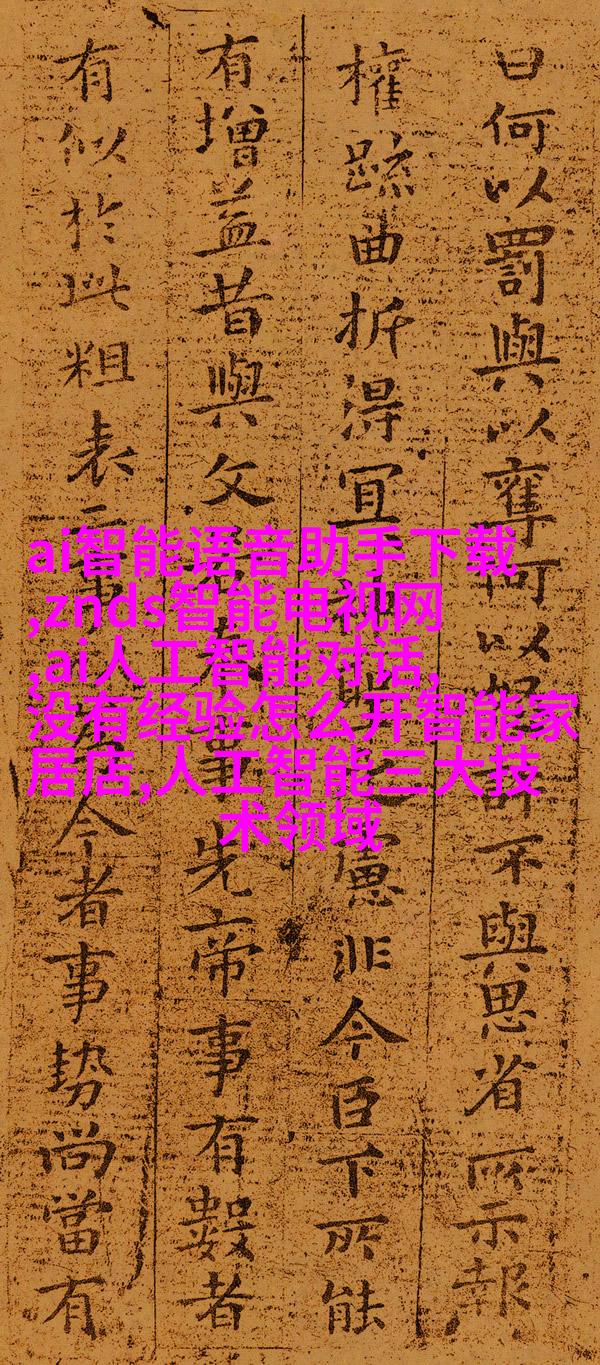 曰何以罰與以奪何以許不與思省所示報
權疏曲折得宜慮非今臣下所能
有增益昔與文事先帝事有數者
有似於此粗表二今者事勢尚當有
ai智能语音助手下载
,znds智能电视网
,ai人工智能对话,
没有经验怎么开智能家
居店,人工智能三大技
术领域